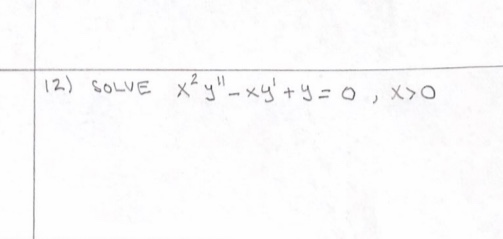 12) SOLVE x²y" - xy' + y = 0 , x>0